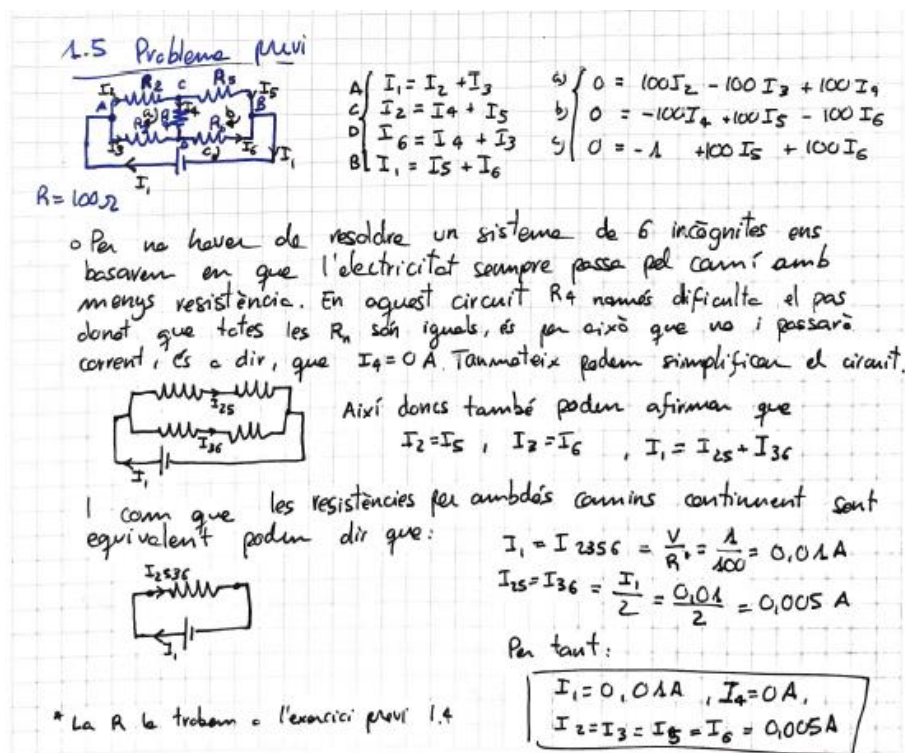 1.5 Problema previ
I₁ R₂ C R₅ I₅
A a) I₄ b) B
I₃ D c) I₆ I₁
I₁
R = 100Ω
A { I₁ = I₂ + I₃
C { I₂ = I₄ + I₅
D { I₆ = I₄ + I₃
B { I₁ = I₅ + I₆
a) { 0 = 100I₂ - 100 I₃ + 100 I₄
b) { 0 = -100I₄ + 100 I₅ - 100 I₆
c) { 0 = -1 + 100 I₅ + 100 I₆
o Per no haver de resoldre un sistema de 6 incògnites ens
basarem en que l'electricitat sempre passa pel camí amb
menys resistència. En aquest circuit R4 només dificulta el pas
donat que totes les Rₙ són iguals, és per això que no i passarà
corrent, és a dir, que I₄ = 0 A. Tanmateix podem simplificar el circuit.
I₂₅
I₃₆
I₁
Així doncs també podem afirmar que
I₂ = I₅ , I₃ = I₆ , I₁ = I₂₅ + I₃₆
I com que les resistències per ambdós camins continuent sent
equivalent podem dir que:
I₂₅₃₆
I₁
I₁ = I 2356 = V/R* = 1/100 = 0,01 A
I₂₅ = I₃₆ = I₁/2 = 0,01/2 = 0,005 A
Per tant:
I₁ = 0,01A , I₄ = 0 A,
I₂ = I₃ = I₅ = I₆ = 0,005A
* La R la trobem a l'exercici previ 1.4